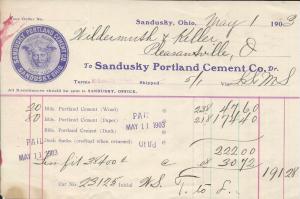 Your Order No.
Sandusky, Ohio, May 1 1903
Wildermuth & Keller
Pleasantville, O
SANDUSKY PORTLAND CEMENT CO.
SANDUSKY, OHIO.
To Sandusky Portland Cement Co., Dr.
Terms Shipped 5/1 Via
All Remittances should be sent to SANDUSKY OFFICE.
20 Bbls. Portland Cement (Wood) 238 4760
80 Bbls. Portland Cement (Paper) 218 17440
Bbls. Portland Cement (Duck)
Duck Sacks (credited when returned)
PAID
MAY 11 1903
PAID
MAY 11 1903
22200
38400 @ 8 3072
19128
Car No. 23125 W.S. T. to L.